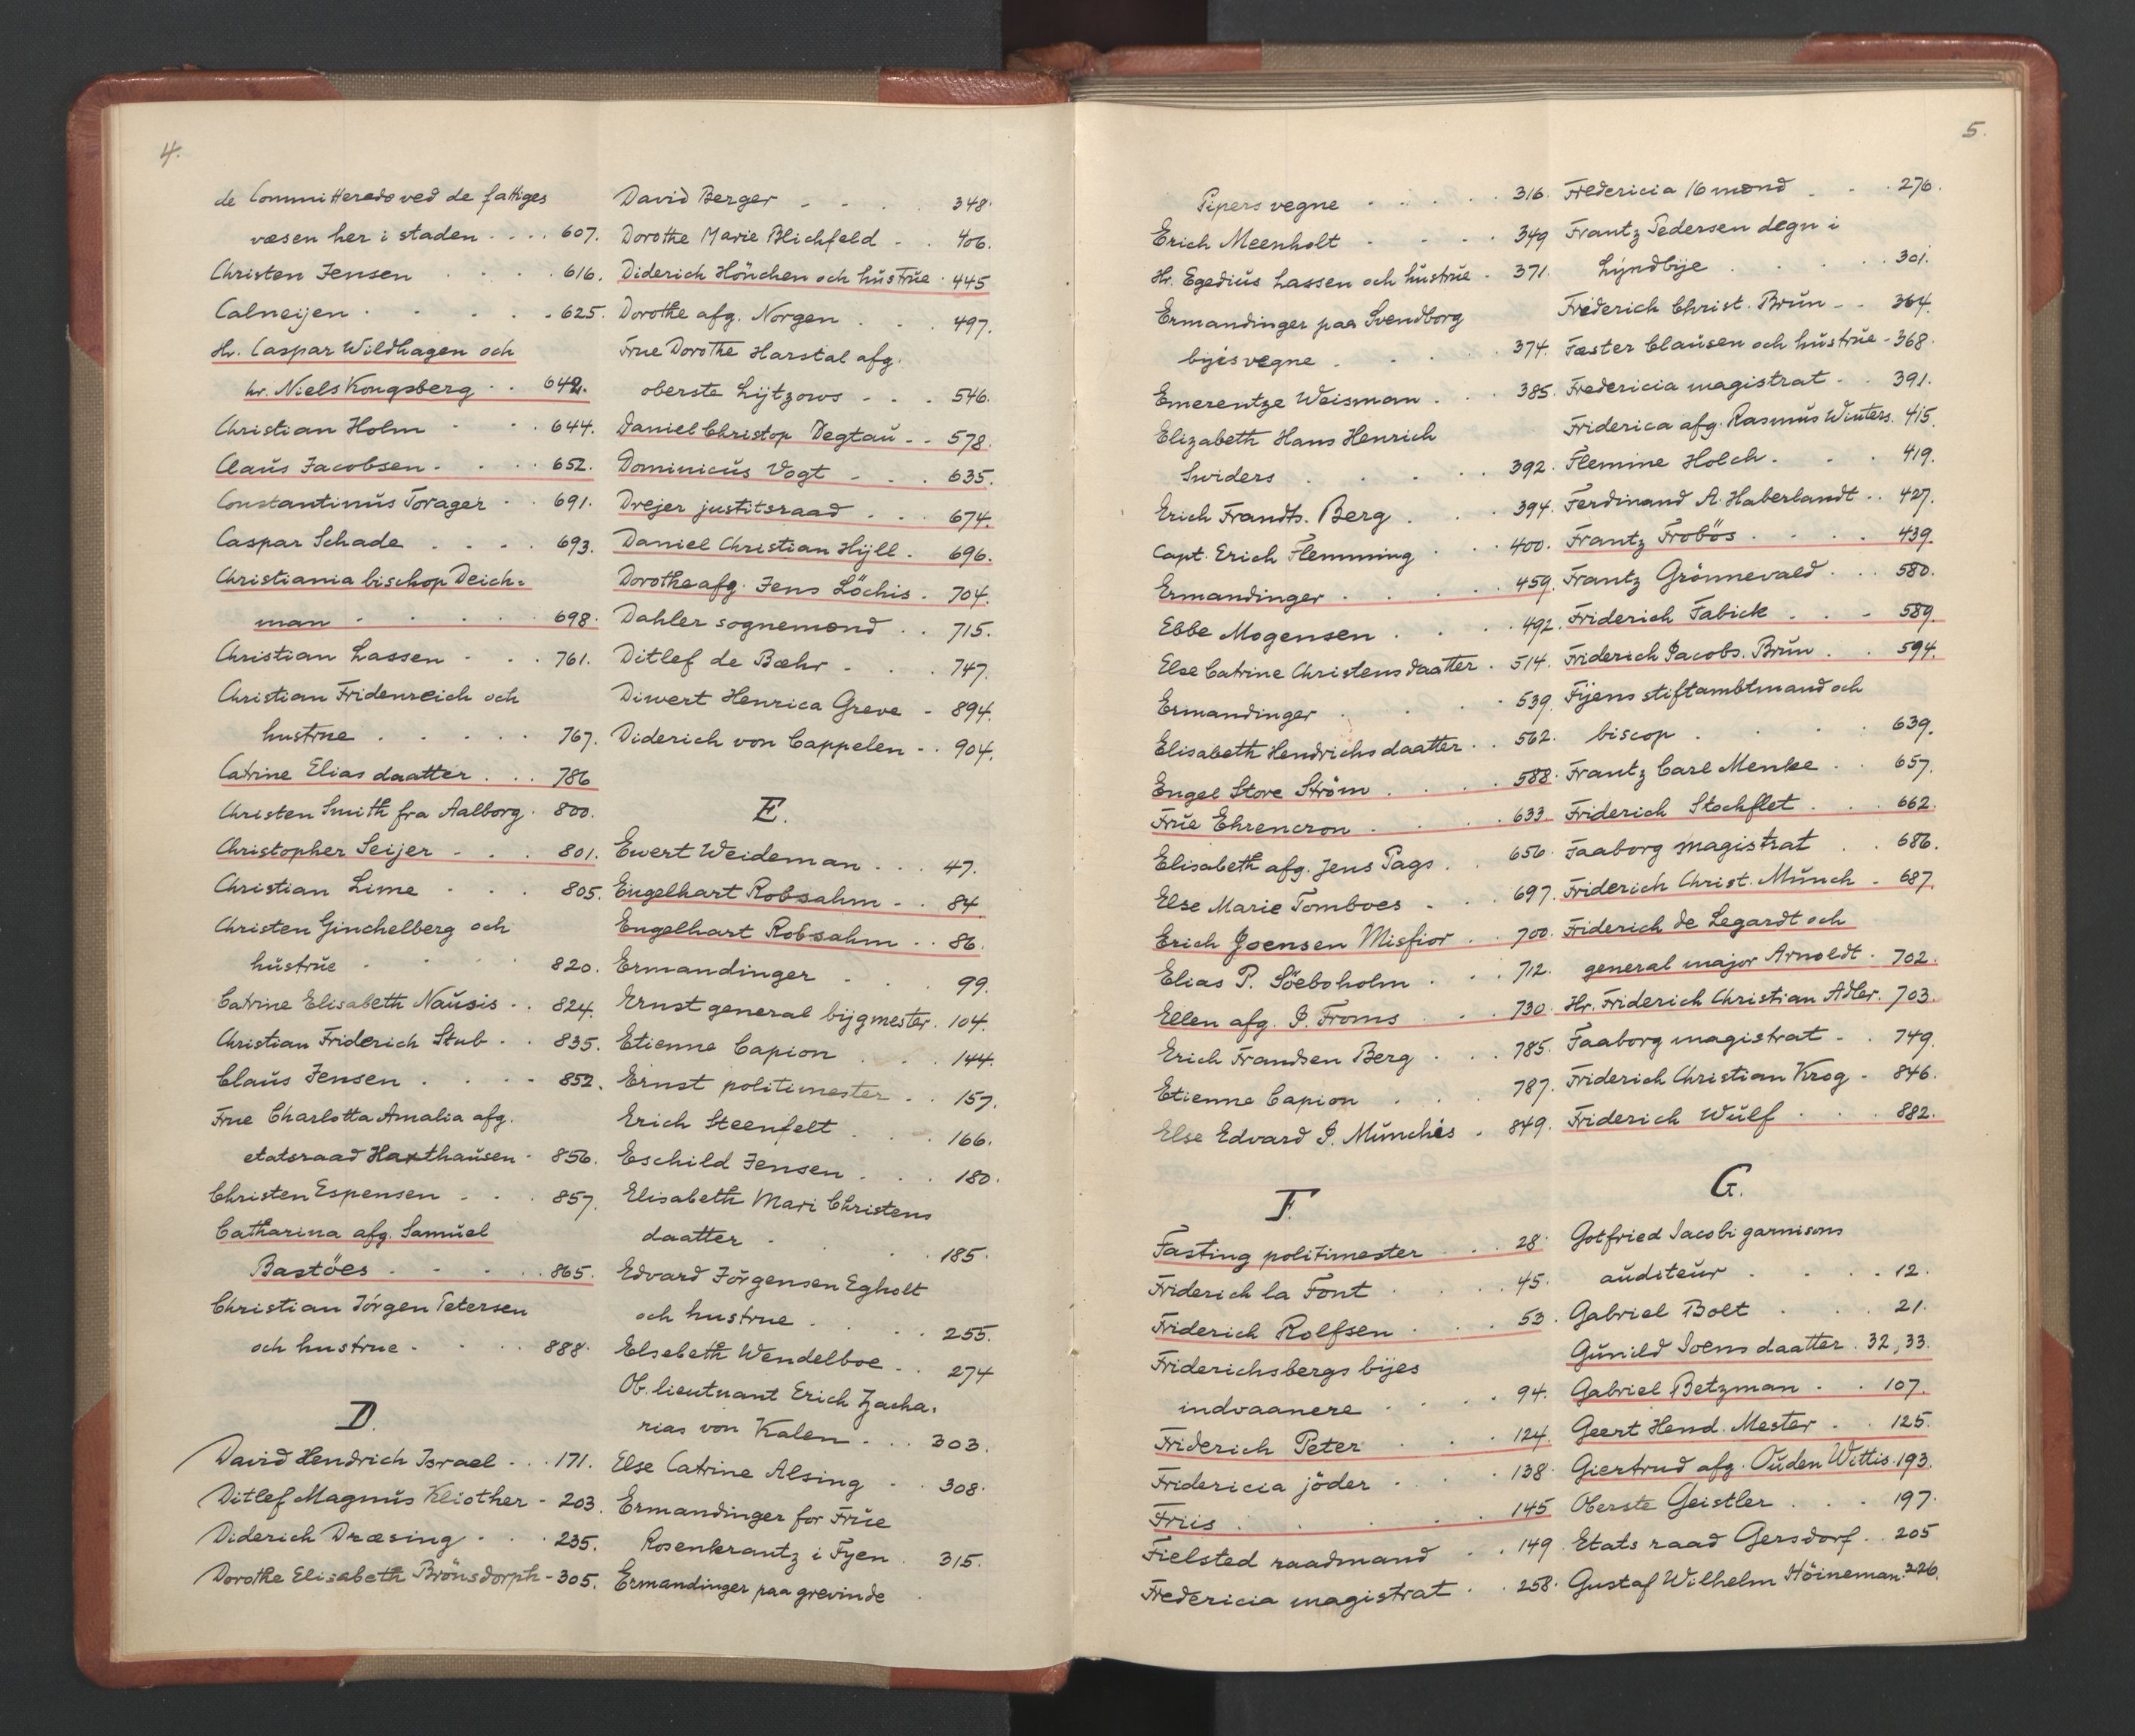 4.
de Committerede ved de fattiges
væsen her i staden . . . . 607.
Christen Jensen . . . . 616.
Calneijen . . . . . 625.
Hr. Caspar Wildhagen och
hr. Niels Kongsberg . . 642.
Christian Holm . . . 644.
Claüs Jacobsen . . . . 652.
Constantinüs Torager . . 691.
Caspar Schade . . . . 693.
Christiania bischop Deich=
man . . . . . 698.
Christian Lassen . . . 761.
Christian Fridenreich och
hustrue . . . . . 767.
Catrine Elias daatter . . . 786
Christen Smith fra Aalborg . 800.
Christopher Seijer . . . 801.
Christian Lime . . . 805.
Christen Ginchelberg och
hüstrüe . . . . 820.
Catrine Elisabeth Naüsis . . 824.
Christian Friderich Stub . . 835.
Claüs Jensen . . . . 852.
Frue Charlotta Amalia afg.
etatsraad Haxthaüsen . 856.
Christen Espensen . . . 857.
Catharina afg. Samüel
Bastöes . . . . . 865.
Christian Jörgen Petersen
och hustrue . . . . 888.
D.
David Hendrich Israel . . . 171.
Ditlef Magnüs Kliother . 203.
Diderich Dræsing . . . 235.
Dorothe Elisabeth Brönsdorph . 305.
David Berger . . . . 348.
Dorothe Marie Blichfeld . . 406.
Diderich Hönchen och hüstrüe . 445
Dorothe afg. Norgen . . . 497.
Frue Dorothe Harstal afg.
oberste Lijtzows . . . 546.
Daniel Christop Degtaü . . 578.
Dominicüs Vogt . . . 635.
Drejer justitsraad . . . 674.
Daniel Christian Hijll . 696.
Dorothe afg. Jens Löchis . 704.
Dahler sognemand . . 715.
Ditlef de Bæhr . . . 747.
Diwert Henrica Greve . 894.
Diderich von Cappelen . . 904.
E.
Ewert Weideman . . . 47.
Engelhart Robsahm . . 84.
Engelhart Robsahm . . 86.
Ermandinger . . . 99.
Ernst general bijgmester . 104.
Etienne Capion . . . 144.
Ernst politimester . . 157.
Erich Steenfelt . . . 166.
Eschild Jensen . . . 180.
Elisabeth Mari Christens
daatter . . . . 185.
Edvard Jörgensen Egholt
och hustrue . . . . 255.
Elsebeth Wendelboe . . 274
Ob. lieutnant Erich Zacha=
rias von Kalen . . . 303.
Else Catrine Alsing . . 308.
Ermandinger for Früe
Rosenkrantz i Fyen . 315.
Ermandinger paa grevinde
5.
Pipers vegne . . . . . 316.
Erich Meenholt . . . . 349
Hr. Egediüs Lassen och hüstrüe . 371.
Ermandinger paa Svendborg
bijes vegne . . . . 374.
Emerentze Weisman . . . 385.
Elizabeth Hans Henrich
Swiders . . . . . 392.
Erich Frandts. Berg . . . 394.
Capt. Erich Flemming . . . 400.
Ermandinger . . . . . 459.
Ebbe Mogensen . . . . 492.
Else Catrine Christens daatter . 514.
Ermandinger . . . . 539.
Elisabeth Hendrichs daatter . . 562.
Engel Store Ström . . . . 588.
Früe Ehrencron . . . . 633.
Elisabeth afg. Jens Pags . . 656.
Else Marie Tomboes . . . 697.
Erich Joensen Misfior . . 700.
Elias P. Söeboholm . . . 712.
Ellen afg. P. Froms . . . 730.
Erich Frandsen Berg . . . 785.
Etienne Capion . . . . 787.
Else Edvard P. Münches . 849.
F.
Fasting politimester . . . 28.
Friderich la Font . . . . 45.
Friderich Rolfsen . . . 53.
Friderichsbergs bijes
indvaanere . . . . 94.
Friderich Peter . . . 124.
Fridericia jöder . . . . 138.
Friis . . . . . 145
Fielsted raadmand . . . 149.
Fredericia magistrat . . 258.
Fredericia 16 mænd . . . 276.
Frantz Pedersen degn i
Lyndbije . . . . . 301.
Friderich Christ. Brün . . 364.
Fæster Claüsen och hüstrüe . 368.
Fredericia magistrat . . 391.
Friderica afg. Rasmüs Winters. 415.
Flemine Holch . . . 419.
Ferdinand A. Haberlandt . . 427.
Frantz Frobös . . . . 439.
Frantz Grönnevald . . . 580.
Friderich Fabick . . . 589.
Friderich Jacobs. Brün . . 594.
Fijens stiftambtmand och
biscop . . . . 639.
Frantz Carl Menke . . 657.
Friderich Stochflet . . . 662.
Faaborg magistrat . . 686.
Friderich Christ. Münch . 687.
Friderich de Legardt och
general major Arnoldt . 702.
Hr. Friderich Christian Adler. 703.
Faaborg magistrat . . 749.
Friderich Christian Krog . 846.
Friderich Wülf . . . 882.
G.
Gotfried Jacobi garnisons
aüditeür . . . . 12.
Gabriel Bolt . . . 21.
Günild Joens daatter . 32, 33.
Gabriel Betzman . . 107.
Geert Hend. Mester . . 125.
Giertrud afg. Oüden Wittis . 193.
Oberste Geistler . . . 197.
Etats raad Gersdorf . . 205
Gustaf Wilhelm Höineman . 226.